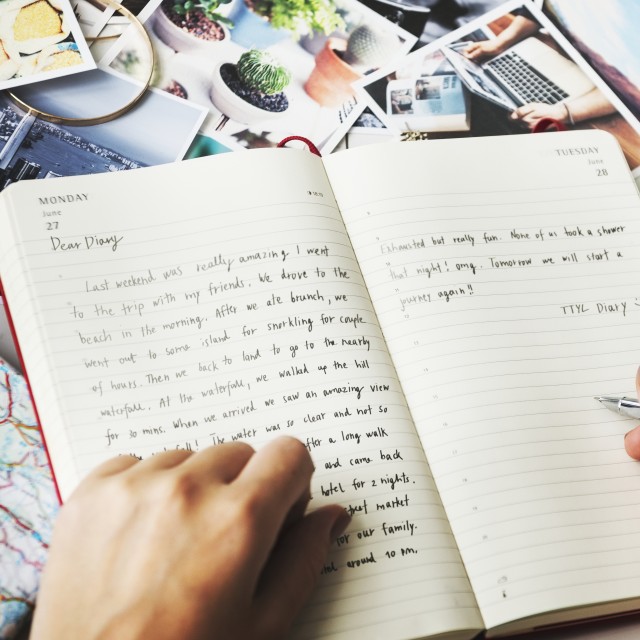 MONDAY
June
27
Dear Diary
Last weekend was really amazing. I went
to the trip with my friends. We drove to the
beach in the morning. After we ate brunch, we
went out to some island for snorkling for couple
of hours. Then we back to land to go to the nearly
waterfall. At the waterfall, we walked up the hill
for 30 mins. When we arrived we saw an amazing view
The water was so clear and not so
a long walk
and came back
hotel for 2 nights.
market
for our family.
around 10 pm.
TUESDAY
June
28
Exhausted but really fun. None of us took a shower
that night! omg. Tomorrow we will start a
journey again!!
TTYL Diary